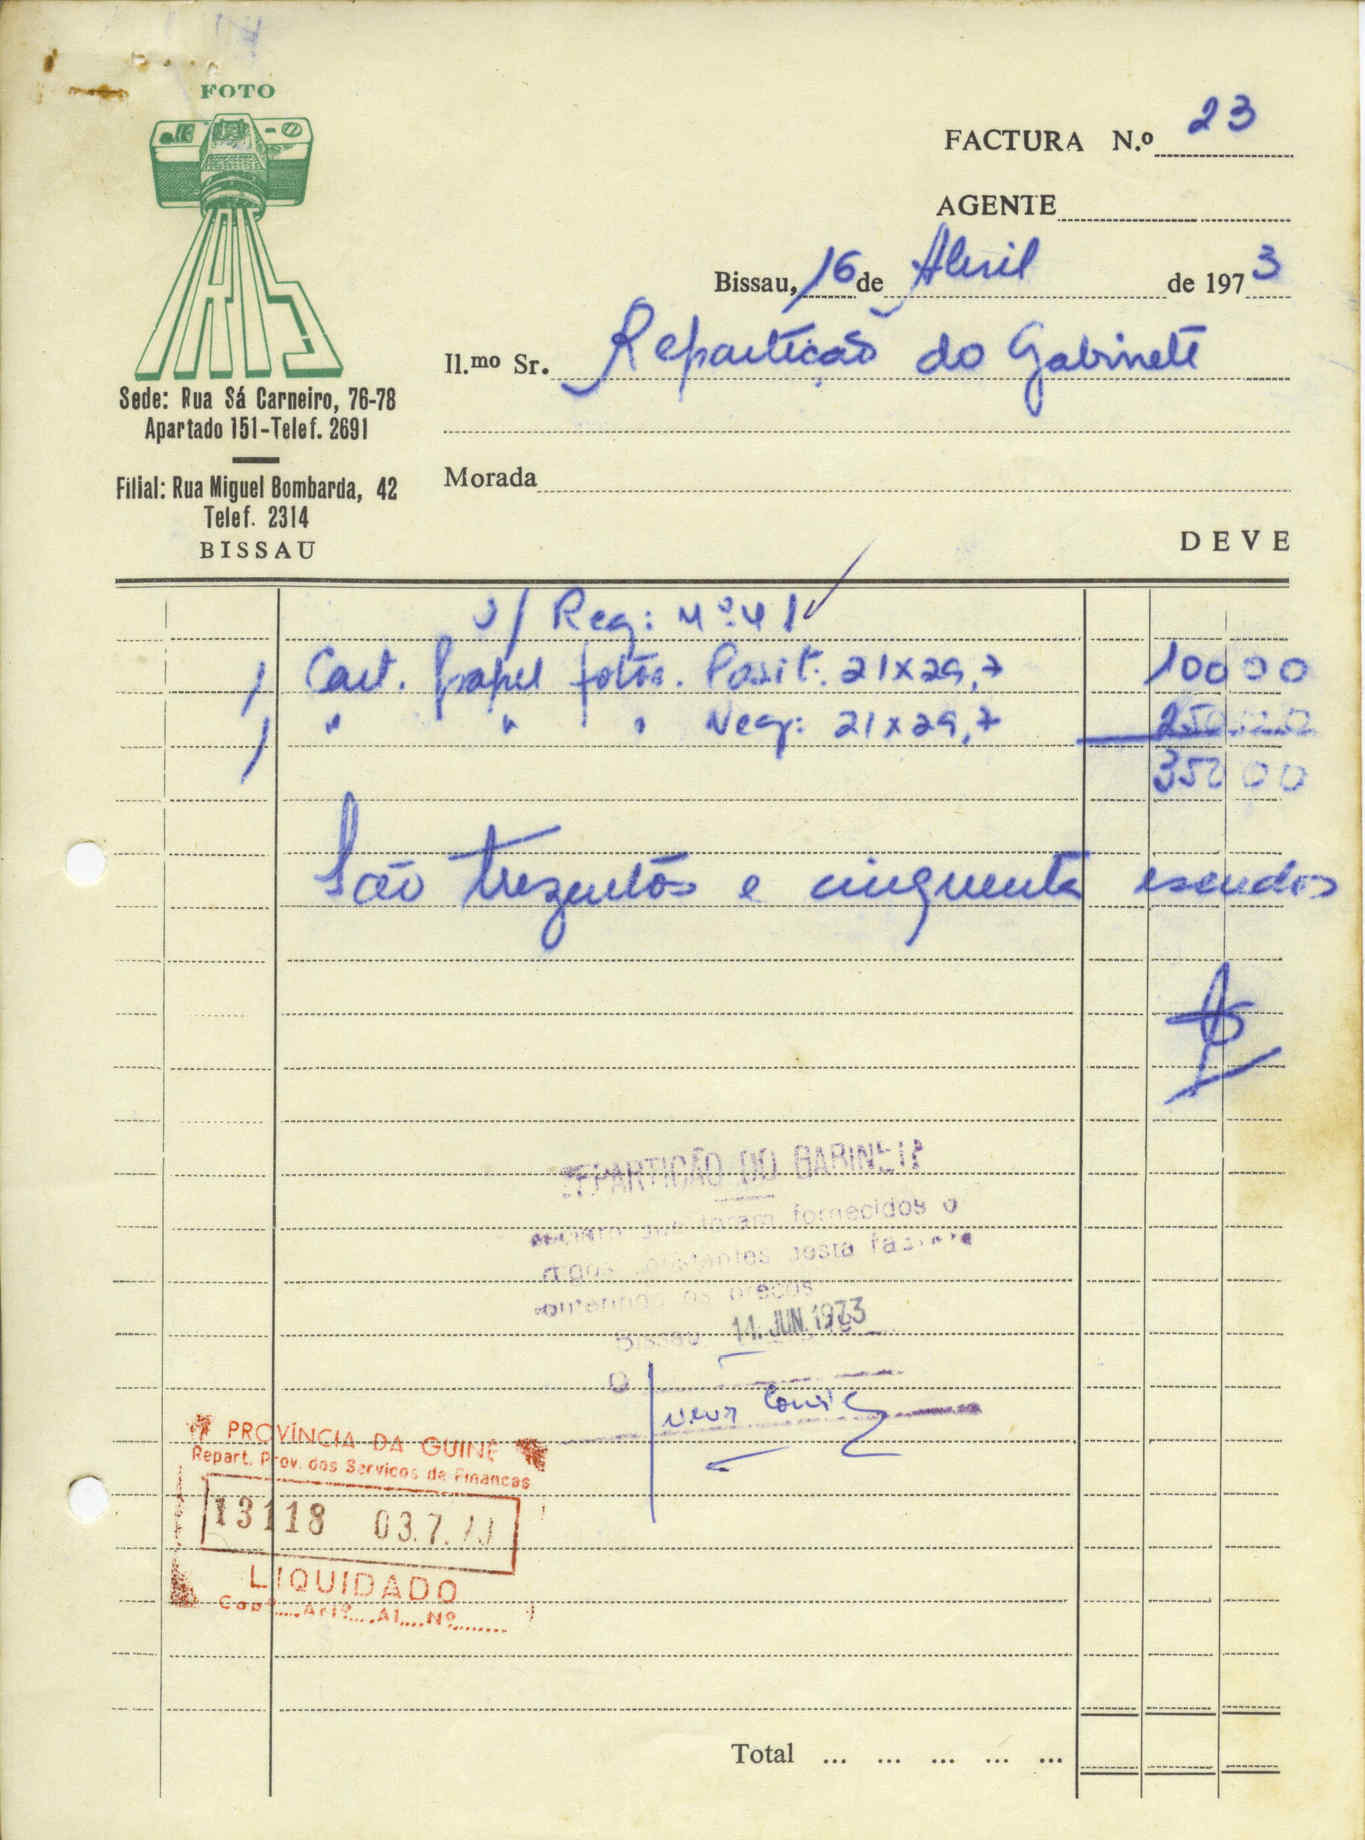 FOTO
IRIS
Sede: Rua Sá Carneiro, 76-78
Apartado 151-Telef. 2691
Filial: Rua Miguel Bombarda, 42
Telef. 2314
BISSAU
FACTURA N.º 23
AGENTE
Bissau, 16 de Abril de 1973
Il.mo Sr. Repartição do Gabinete
Morada
DEVE
v/ Req: Nº 41
1 Cart. papel fotos. Posit. 21x29,7 100 00
1 " " " Neg: 21x29,7 250 00
350 00
São trezentos e cinquenta escudos
REPARTIÇÃO DO GABINETE
foram fornecidos o
constantes desta factura
os preços
Bissau 14. JUN. 1973
O
PROVÍNCIA DA GUINÉ
Repart. Prov. dos Serviços de Finanças
13118 03.7.73
LIQUIDADO
Capº.... Artº.... Al.... Nº.......
Total ... ... ... ... ...